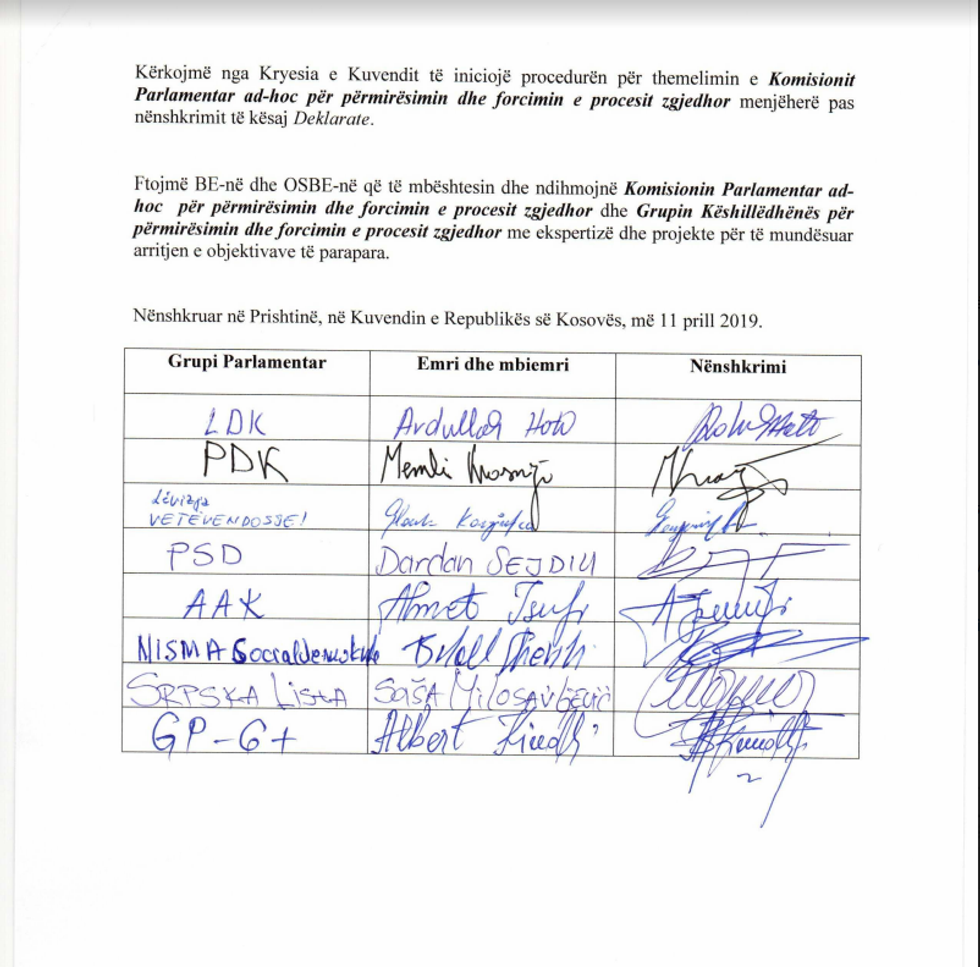 Kërkojmë nga Kryesia e Kuvendit të iniciojë procedurën për themelimin e Komisionit
Parlamentar ad-hoc për përmirësimin dhe forcimin e procesit zgjedhor menjëherë pas
nënshkrimit të kësaj Deklarate.
Ftojmë BE-në dhe OSBE-në që të mbështesin dhe ndihmojnë Komisionin Parlamentar ad-
hoc për përmirësimin dhe forcimin e procesit zgjedhor dhe Grupin Këshillëdhënës për
përmirësimin dhe forcimin e procesit zgjedhor me ekspertizë dhe projekte për të mundësuar
arritjen e objektivave të parapara.
Nënshkruar në Prishtinë, në Kuvendin e Republikës së Kosovës, më 11 prill 2019.
Grupi Parlamentar Emri dhe mbiemri Nënshkrimi
LDK Avdullah Hoti
PDK Memli Krasniqi
Lëvizja
VETËVENDOSJE! Glauk Konjufca
PSD Dardan SEJDIU
AAK Ahmet Isufi
NISMA Socialdemokrate Bilall Sherifi
SRPSKA LISTA SAŠA MILOSAVLJEVIĆ
GP-6+ Albert Kinolli